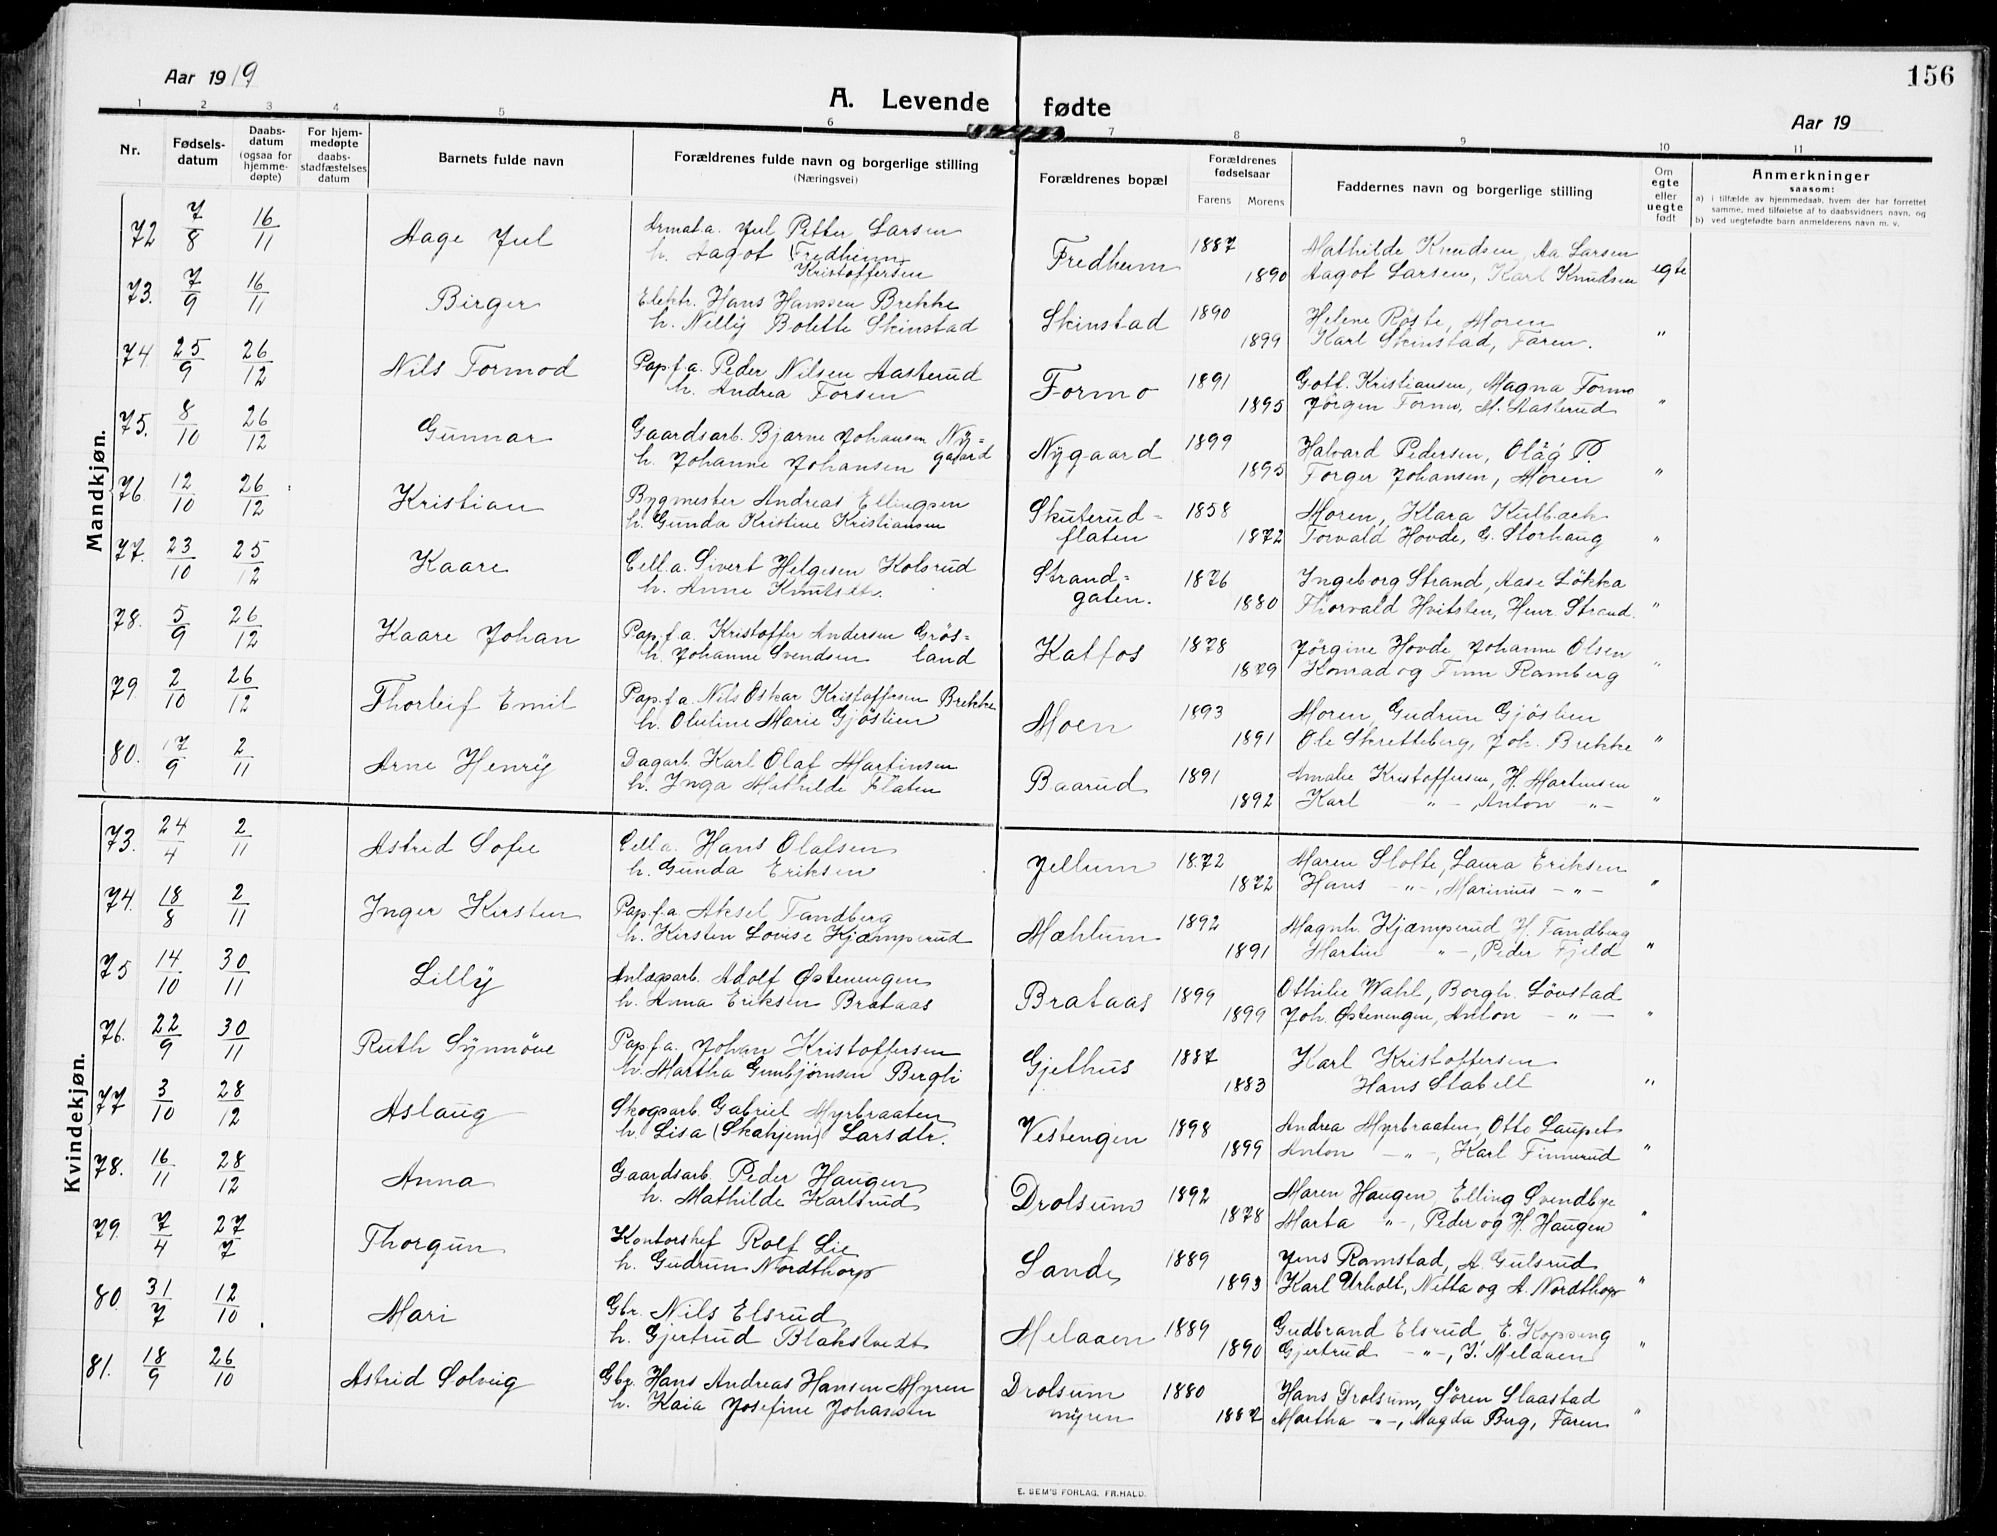 156
Aar 1919
A. Levende fødte
Aar 19
1 2 3 4 5 6 7 8 9 10 11
Nr.
Fødsels-datum
Daabs-datum (ogsaa for hjemme-døpte)
For hjem-medøpte daabs-stadfæstelses datum
Barnets fulde navn
Forældrenes fulde navn og borgerlige stilling
(Næringsvei)
Forældrenes bopæl
Forældrenes fødselsaar
Farens Morens
Faddernes navn og borgerlige stilling
Om egte eller uegte født
Anmerkninger
saasom:
a) i tilfælde av hjemmedaab, hvem der har forrettet samme, med tilføielse af to daabsvidners navn, og
b) ved uegtefødte barn anmelderens navn m. v.
Mandkjøn.
72 7/8 16/11 Aage Jul Armat.a. Jul Petter Larsen Fredheim 1887 Mathilde Knudsen, Aa Larsen
h. Aagot (Fredheim) Kristoffersen 1890 Aagot Larsen, Karl Knudsen egte
73. 7/9 16/11 Birger Elektr. Hans Hanssen Brekke Skinstad 1890 Helene Røste, Moren
h. Nelly Bolette Skinstad 1899 Karl Skinstad, Faren. "
74 25/9 26/12 Nils Tormod Pap.f.a. Peder Nilsen Aasterud Formo 1891 Gott. Kristiansen, Magna Formo
h. Andrea Torsen 1895 Jörgen Formo, M. Aasterud "
75. 8/10 26/12 Gunnar Gaardsarb. Bjarne Johansen Ny= Nygaard 1899 Halvard Pedersen, Olåg P.
h. Johanne Johansen gaard 1895 Torger Johansen, Moren "
76 12/10 26/12 Kristian Bygmester Andreas Ellingsen Skuterud= 1858 Moren, Klara Kulbæck
h. Gunda Kristine Kristiansen flaten 1872 Torvald Hovde, G. Storhaug "
77. 23/10 25/12 Kaare Cell.a. Sivert Helgesen Kolsrud Strand= 1876 Ingeborg Strand, Aase Løkka
h. Anne Knutsdtr. gaten. 1880 Thorvald Hvitsten, Henr. Strand. "
78. 5/9 26/12 Kaare Johan Pap.f.a. Kristoffer Andersen Grös= Katfos 1878 Jörgine Hovde, Johanne Olsen
h. Johanne Svendsen land 1879 Konrad og Finn Ramberg "
79. 2/10 26/12 Thorleif Emil Pap.f.a. Nils Oskar Kristoffersen Brekke Moen 1893 Moren, Gudrun Gjöslien
h. Oleline Marie Gjöslien 1891 Ole Skretteberg, Joh. Brekke "
80. 17/9 2/11 Arne Henrÿ Dagarb. Karl Olaf Martinsen Baarud 1891 Amalie Kristoffersen, H. Martinsen
h. Inga Mathilde Flaten 1892 Karl - " -, Anton - " - "
Kvindekjøn.
73. 24/4 2/11 Astrid Sofie Cell.a. Hans Olafsen Jellum 1872 Maren Slotte, Laura Eriksen
h. Gunda Eriksen 1872 Hans - " -, Marinius - " - "
74. 18/8 2/11 Inger Kirsten Pap.f.a. Aksel Tandberg Mæhlum 1892 Magnh. Kjæmperud, H. Tandberg
h. Kirsten Lovise Kjæmperud 1891 Martin " -, Peder Fjeld "
75 14/10 30/11 Lilly Anlægsarb. Adolf Østenengen Brataas 1899 Othilie Wahl, Borgh. Lövstad
h. Anna Eriksen Brataas 1899 Joh. Østenengen, Anton - " - "
76. 22/9 30/11 Ruth Synnöve Pap.f.a. Johan Kristoffersen Gjethus 1887 Karl Kristoffersen
h. Martha Gunbjørnsen Bergli 1883 Hans Stabell "
77 3/10 28/12 Aslaug Skogsarb. Gabriel Myrbraaten Vestengen 1898 Andrea Myrbraaten, Otto Laupet
h. Lisa (Skahjem) Larsdtr. 1899 Anton - " -, Karl Finnerud "
78. 16/11 28/12 Anna Gaardsarb. Peder Haugen Drolsum 1892 Maren Haugen, Elling Svendbye
h. Mathilde Karlsrud 1878 Marta " -, Peder og H. Haugen "
79. 7/4 27/7 Thorgun Kontorshef Rolf Lie Sande 1889 Jens Ramstad, A. Gulsrud
h. Gudrun Nordthorp 1893 Karl Urholt, Netta og A. Nordthorp "
80. 31/7 12/10 Mari Gbr. Nils Elsrud Melaaen 1889 Gudbrand Elsrud, E. Kopseng
h. Gjertrud Blakstvedt 1890 Gjertrud - " -, J. Melaaen "
81. 18/9 26/10 Astrid Solveig Gbr. Hans Andreas Hansen Myren Drolsum 1880 Hans Drolsum, Søren Slaastad
h. Kaia Josefine Johansen myren 1887 Martha - " -, Magda Berg, Faren "
E. SEM'S FORLAG. FR.HALD.